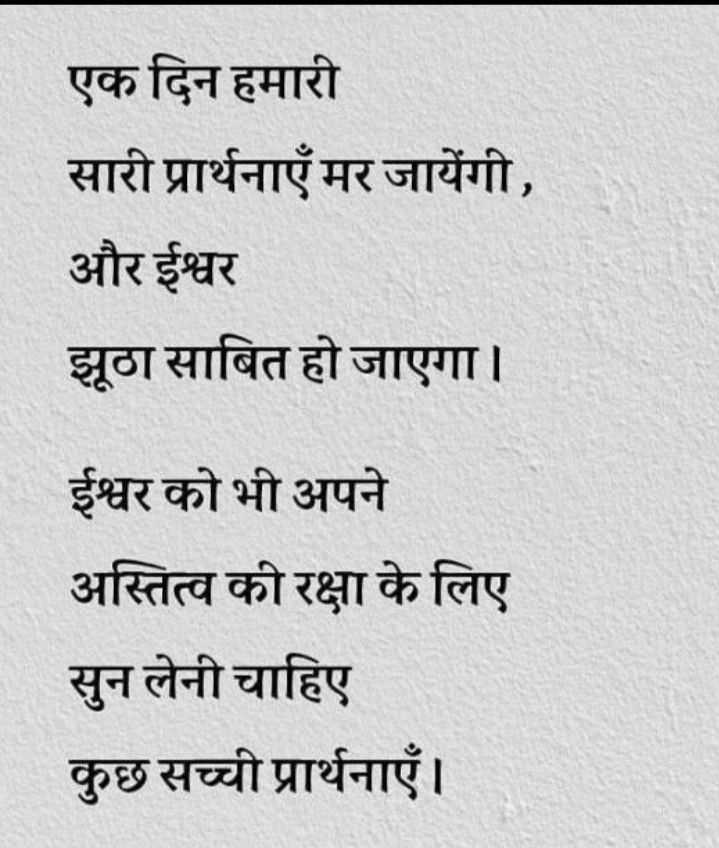 एक दिन हमारी
सारी प्रार्थनाएँ मर जायेंगी ,
और ईश्वर
झूठा साबित हो जाएगा।
ईश्वर को भी अपने
अस्तित्व की रक्षा के लिए
सुन लेनी चाहिए
कुछ सच्ची प्रार्थनाएँ।